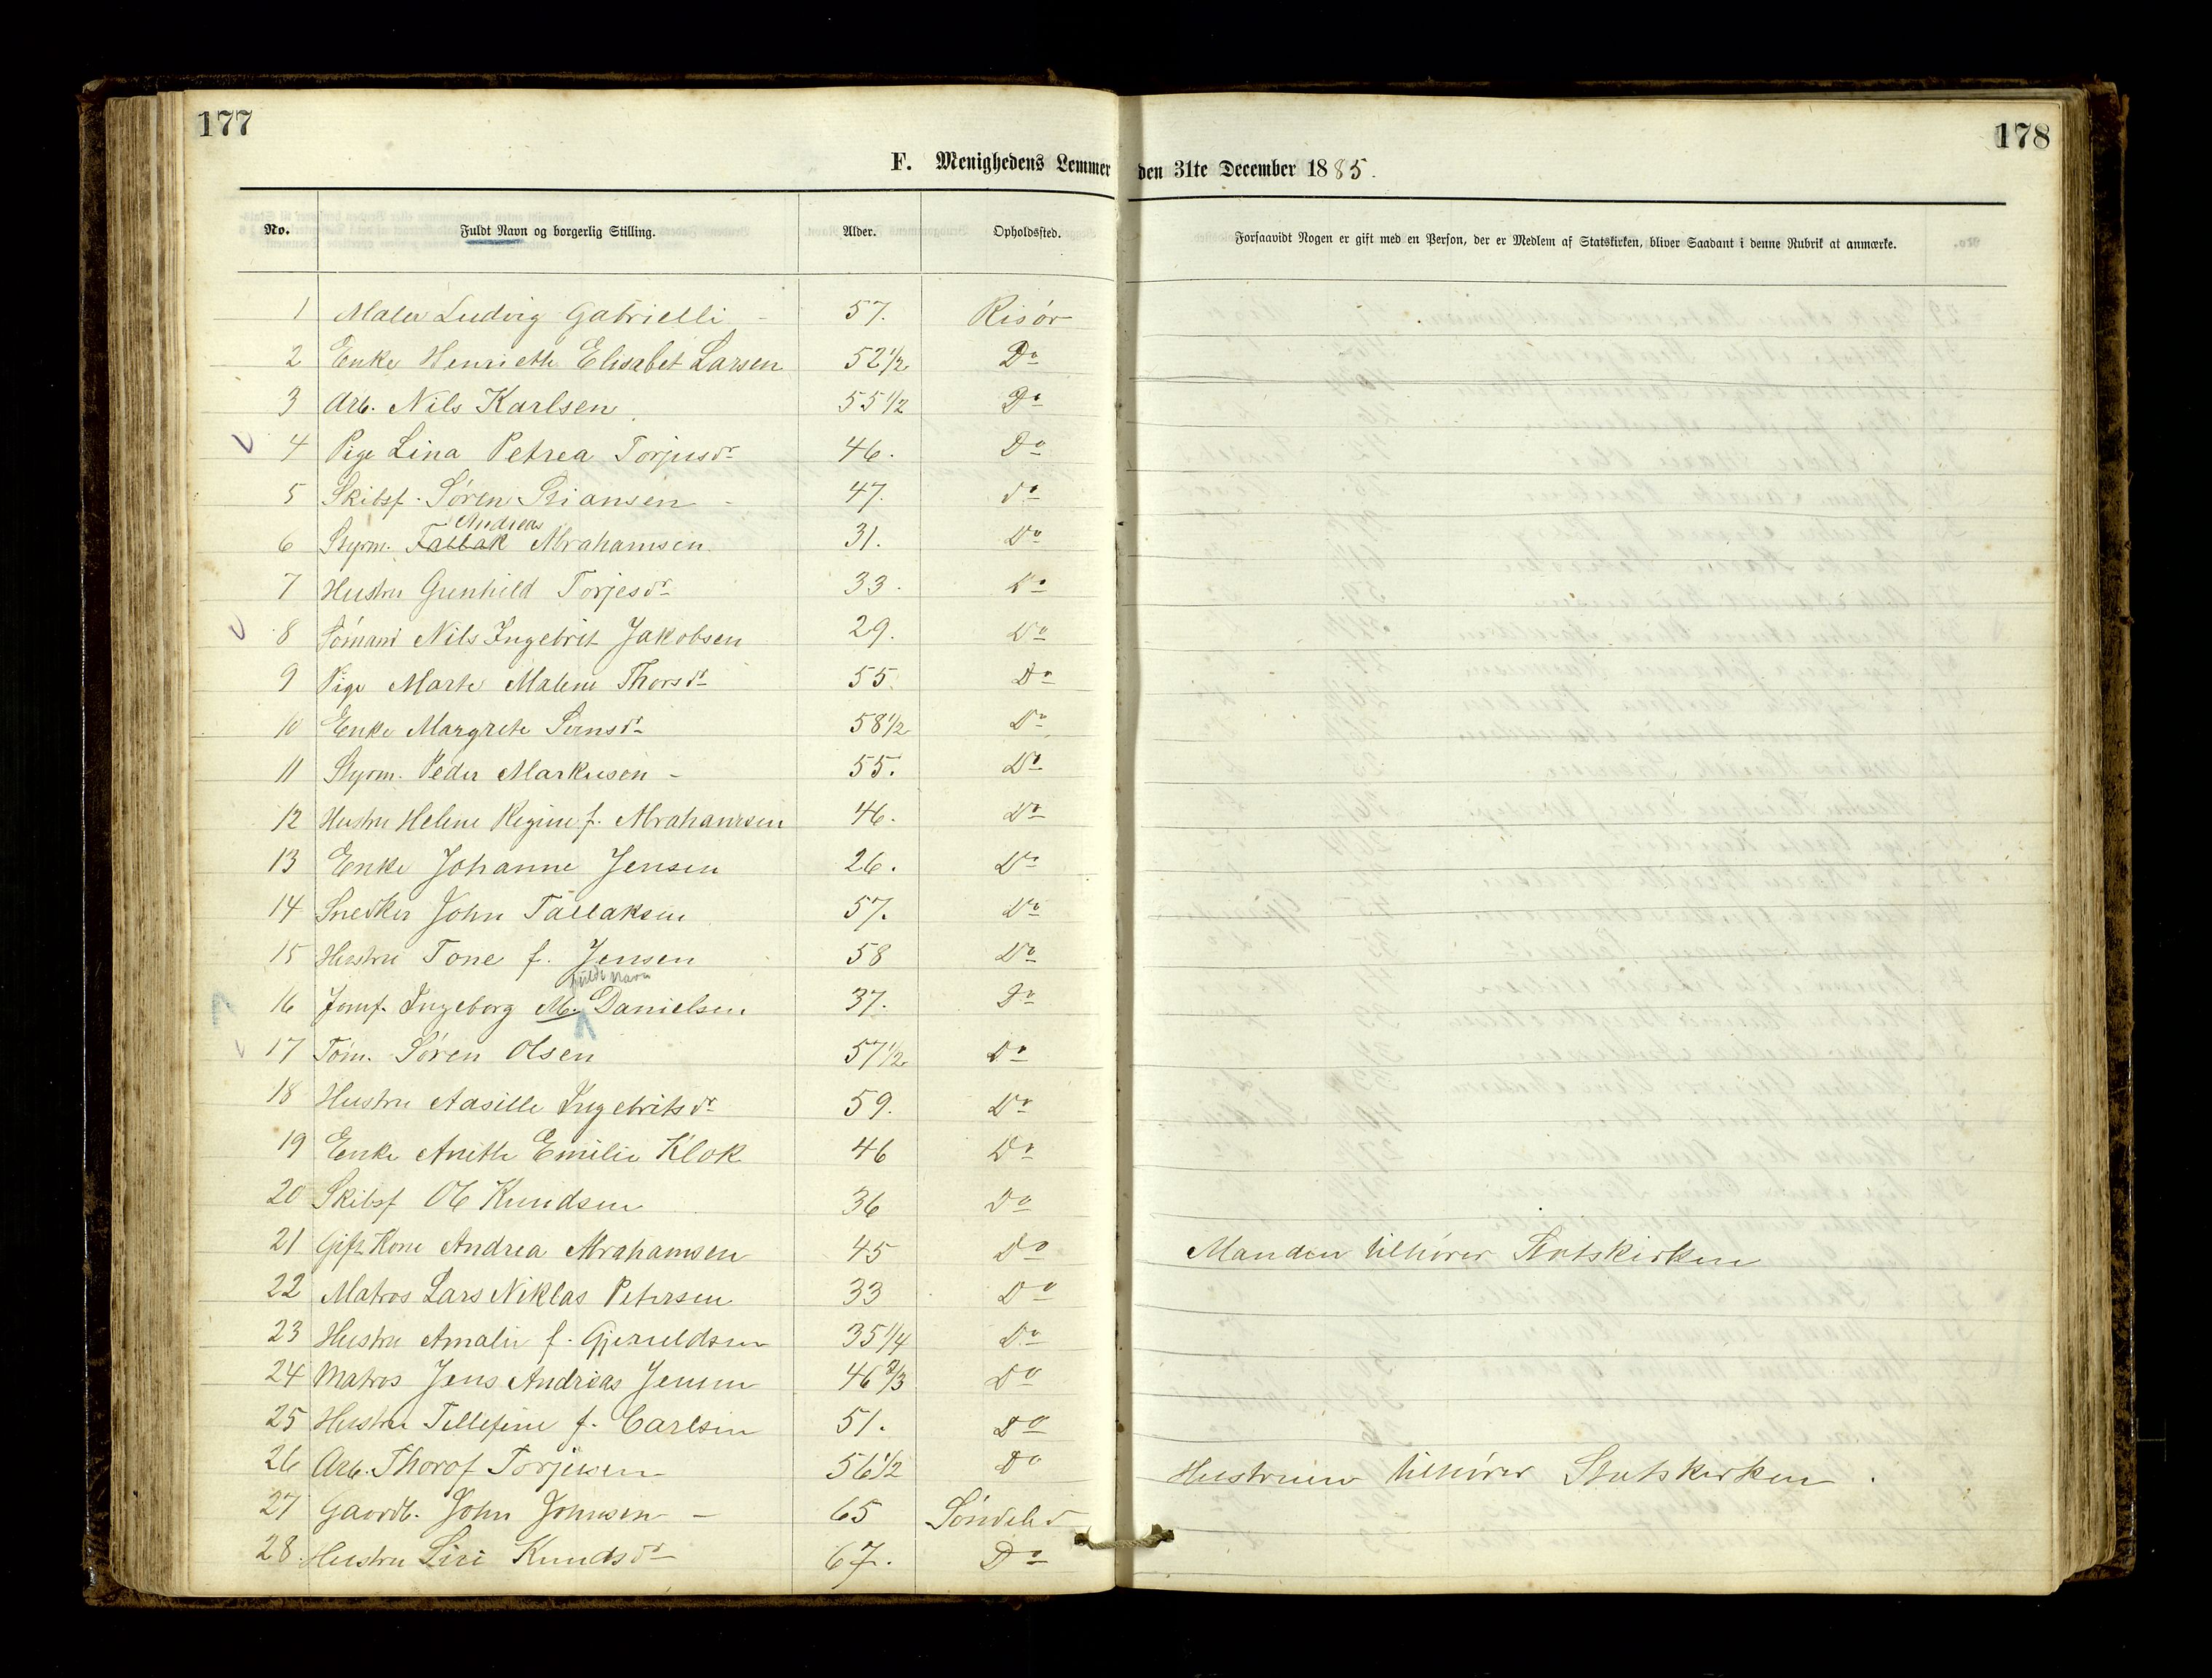 177
178
F. Menighedens Lemmer den 31te December 1885.
No. Fuldt Navn og borgerlig Stilling. Alder. Opholdssted. Forsaavidt Nogen er gift med en Person, der er Medlem af Statskirken, bliver Saadant i denne Rubrik at anmærke.
1 Maler Ludvig Gabrielli - 57. Risør
2 Enke Henriette Elisabet Larsen 52 1/2 Do
3 Arb. Nils Karlsen 55 1/2 Do
4 Pige Lina Petrea Torjusdr 46. Do
5 Skibsf. Søren Stiansen - 47. do
Andreas
6 Styrm. Tallak Abrahamsen 31. Do
7 Hustru Gunhild Torjesdr 33. Do
8 Tómand Nils Ingebret Jakobsen 29. Do
9 Pige Marte Malene Thorsdr 55. Do
10 Enke Margrete Svensdr 58 1/2 Do
11 Styrm. Peder Markuson - 55. Do
12 Hustru Helene Regine f. Abrahamsen 46. Do
13 Enke Johanne Jensen 26. Do
14 Snedker John Tallaksen 57. Do
15 Hustru Tone f. Jensen 58 Do
fuldt Navn
16 Jomf. Ingeborg M. Danielsen 37. Do
17 Tøm. Søren Olsen 57 1/2 Do
18 Hustru Aasille Ingebritsdr 59. Do
19 Enke Anette Emilie Klok 46 Do
20 Skibsf Ole Knudsen 36 Do
21 Gift Kone Andrea Abrahamsen 45 Do Manden tilhører Statskirken
22 Matros Lars Niklas Petersen 33 Do
23 Hustru Amalie f. Gjeruldsen 35 1/4 Do
24 Matros Jens Andreas Jensen 46 2/3 Do
25 Hustru Tellefine f. Carlsen 51. Do
26 Arb. Thorof Torjusen 56 1/2 Do Hustruen tilhører Statskirken.
27 Gaardb. John Johnsen - 65 Søndeled
28. Hustru Siri Knudsdr 67. Do